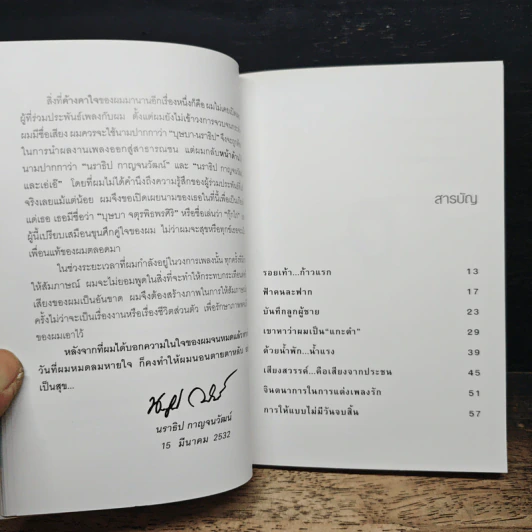 สิ่งที่ค้างคาใจของผมมานานอีกเรื่องหนึ่งก็คือ ผมไม่เคย
ผู้ที่ร่วมประพันธ์เพลงกับผม ตั้งแต่ผมยังไม่เข้าวงการ
ผมมีชื่อเสียง ผมควรจะใช้นามปากกาว่า "บุษบา-นราธิป"
ในการนำผลงานเพลงออกสู่สาธารณชน แต่ผมกลับ
นามปากกาว่า "นราธิป กาญจนวัฒน์" และ "นราธิป กาญจนวัฒน์
และเอ๋เอ๊" โดยที่ผมไม่ได้คำนึงถึงความรู้สึกของผู้ร่วมประพันธ์
จริงเลยแม้แต่น้อย ผมจึงขอเปิดเผยนามของเธอในที่นี้
แด่เธอ เธอมีชื่อว่า "บุษบา จตุรพิธพรศิริ" หรือชื่อเล่นว่า
ผู้นี้เปรียบเสมือนขุนศึกคู่ใจของผม ไม่ว่าผมจะสุขหรือทุกข์
เพื่อนแท้ของผมตลอดมา
ในช่วงระยะเวลาที่ผมกำลังอยู่ในวงการเพลงนั้น ทุกครั้งที่
ให้สัมภาษณ์ ผมจะไม่ยอมพูดในสิ่งที่จะทำให้กระทบกระเทือน
เสียงของผมเป็นอันขาด ผมจึงต้องสร้างภาพในการให้สัมภาษณ์
ครั้งไม่ว่าจะเป็นเรื่องงานหรือเรื่องชีวิตส่วนตัว เพื่อรักษา
ของผมเอาไว้
หลังจากที่ผมได้บอกความในใจของผมจนหมดแล้ว
วันที่ผมหมดลมหายใจ ก็คงทำให้ผมนอนตายตาหลับ
เป็นสุข...
นราธิป กาญจนวัฒน์
15 มีนาคม 2532
สารบัญ
รอยเท้า...ก้าวแรก 13
ฟ้าคนละฟาก 17
บันทึกลูกผู้ชาย 23
เขาหาว่าผมเป็น"แกะดำ" 29
ด้วยน้ำพัก...น้ำแรง 39
เสียงสวรรค์...คือเสียงจากประชน 45
จินตนาการในการแต่งเพลงรัก 51
การให้แบบไม่มีวันจบสิ้น 57